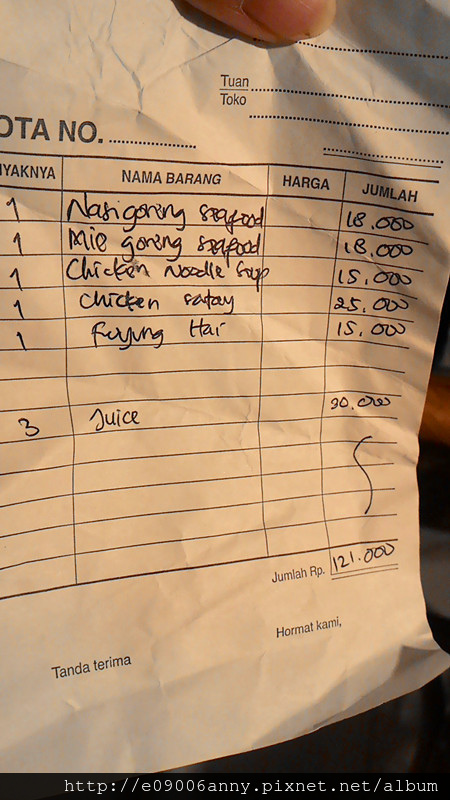 Tuan
Toko
OTA NO.
NYAKNYA NAMA BARANG HARGA JUMLAH
1 Nasi goreng seafood 18.000
1 Mie goreng seafood 18.000
1 Chicken Noodle Soup 15.000
1 Chicken satay 25.000
1 Fuyung Hai 15.000
3 Juice 30.000
Jumlah Rp. 121.000
Hormat kami,
Tanda terima
http://e09006anny.pixnet.net/album